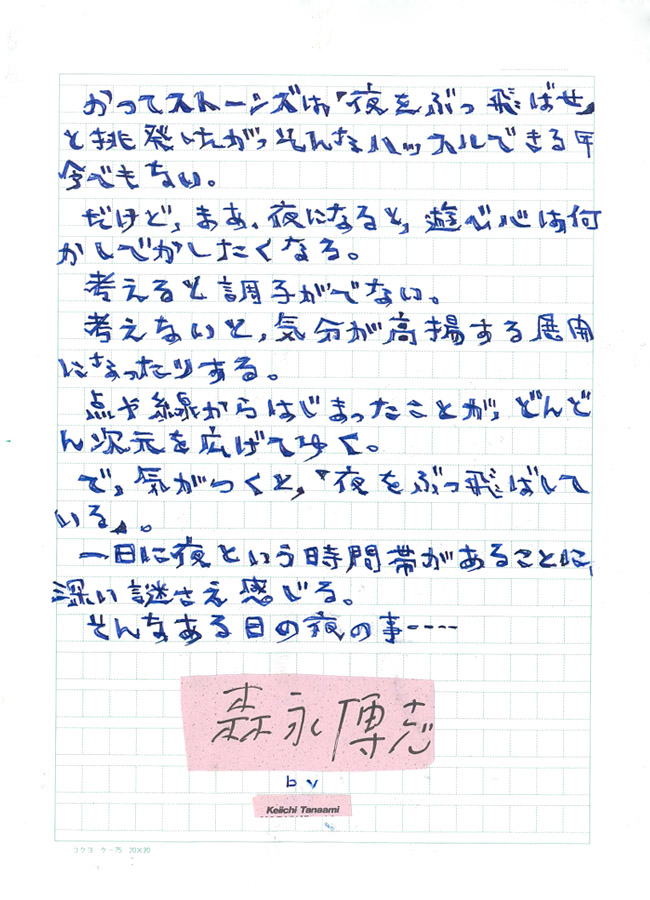 かつてストーンズは、『夜をぶっ飛ばせ』
と挑発したが、そんなハッスルできる年
令でもない。
だけど、まあ、夜になると、遊べ心は何
かしでかしたくなる。
考えると調子がでない。
考えないと、気分が高揚する展開
になったりする。
点や線からはじまったことが、どんど
ん次元を広げてゆく。
で、気がつくと、『夜をぶっ飛ばして
いる』。
一日に夜という時間帯があることに、
深い謎さえ感じる。
そんなある日の夜の事----
森永博志
by
Keiichi Tanaami
コクヨ ケ-75 20×20